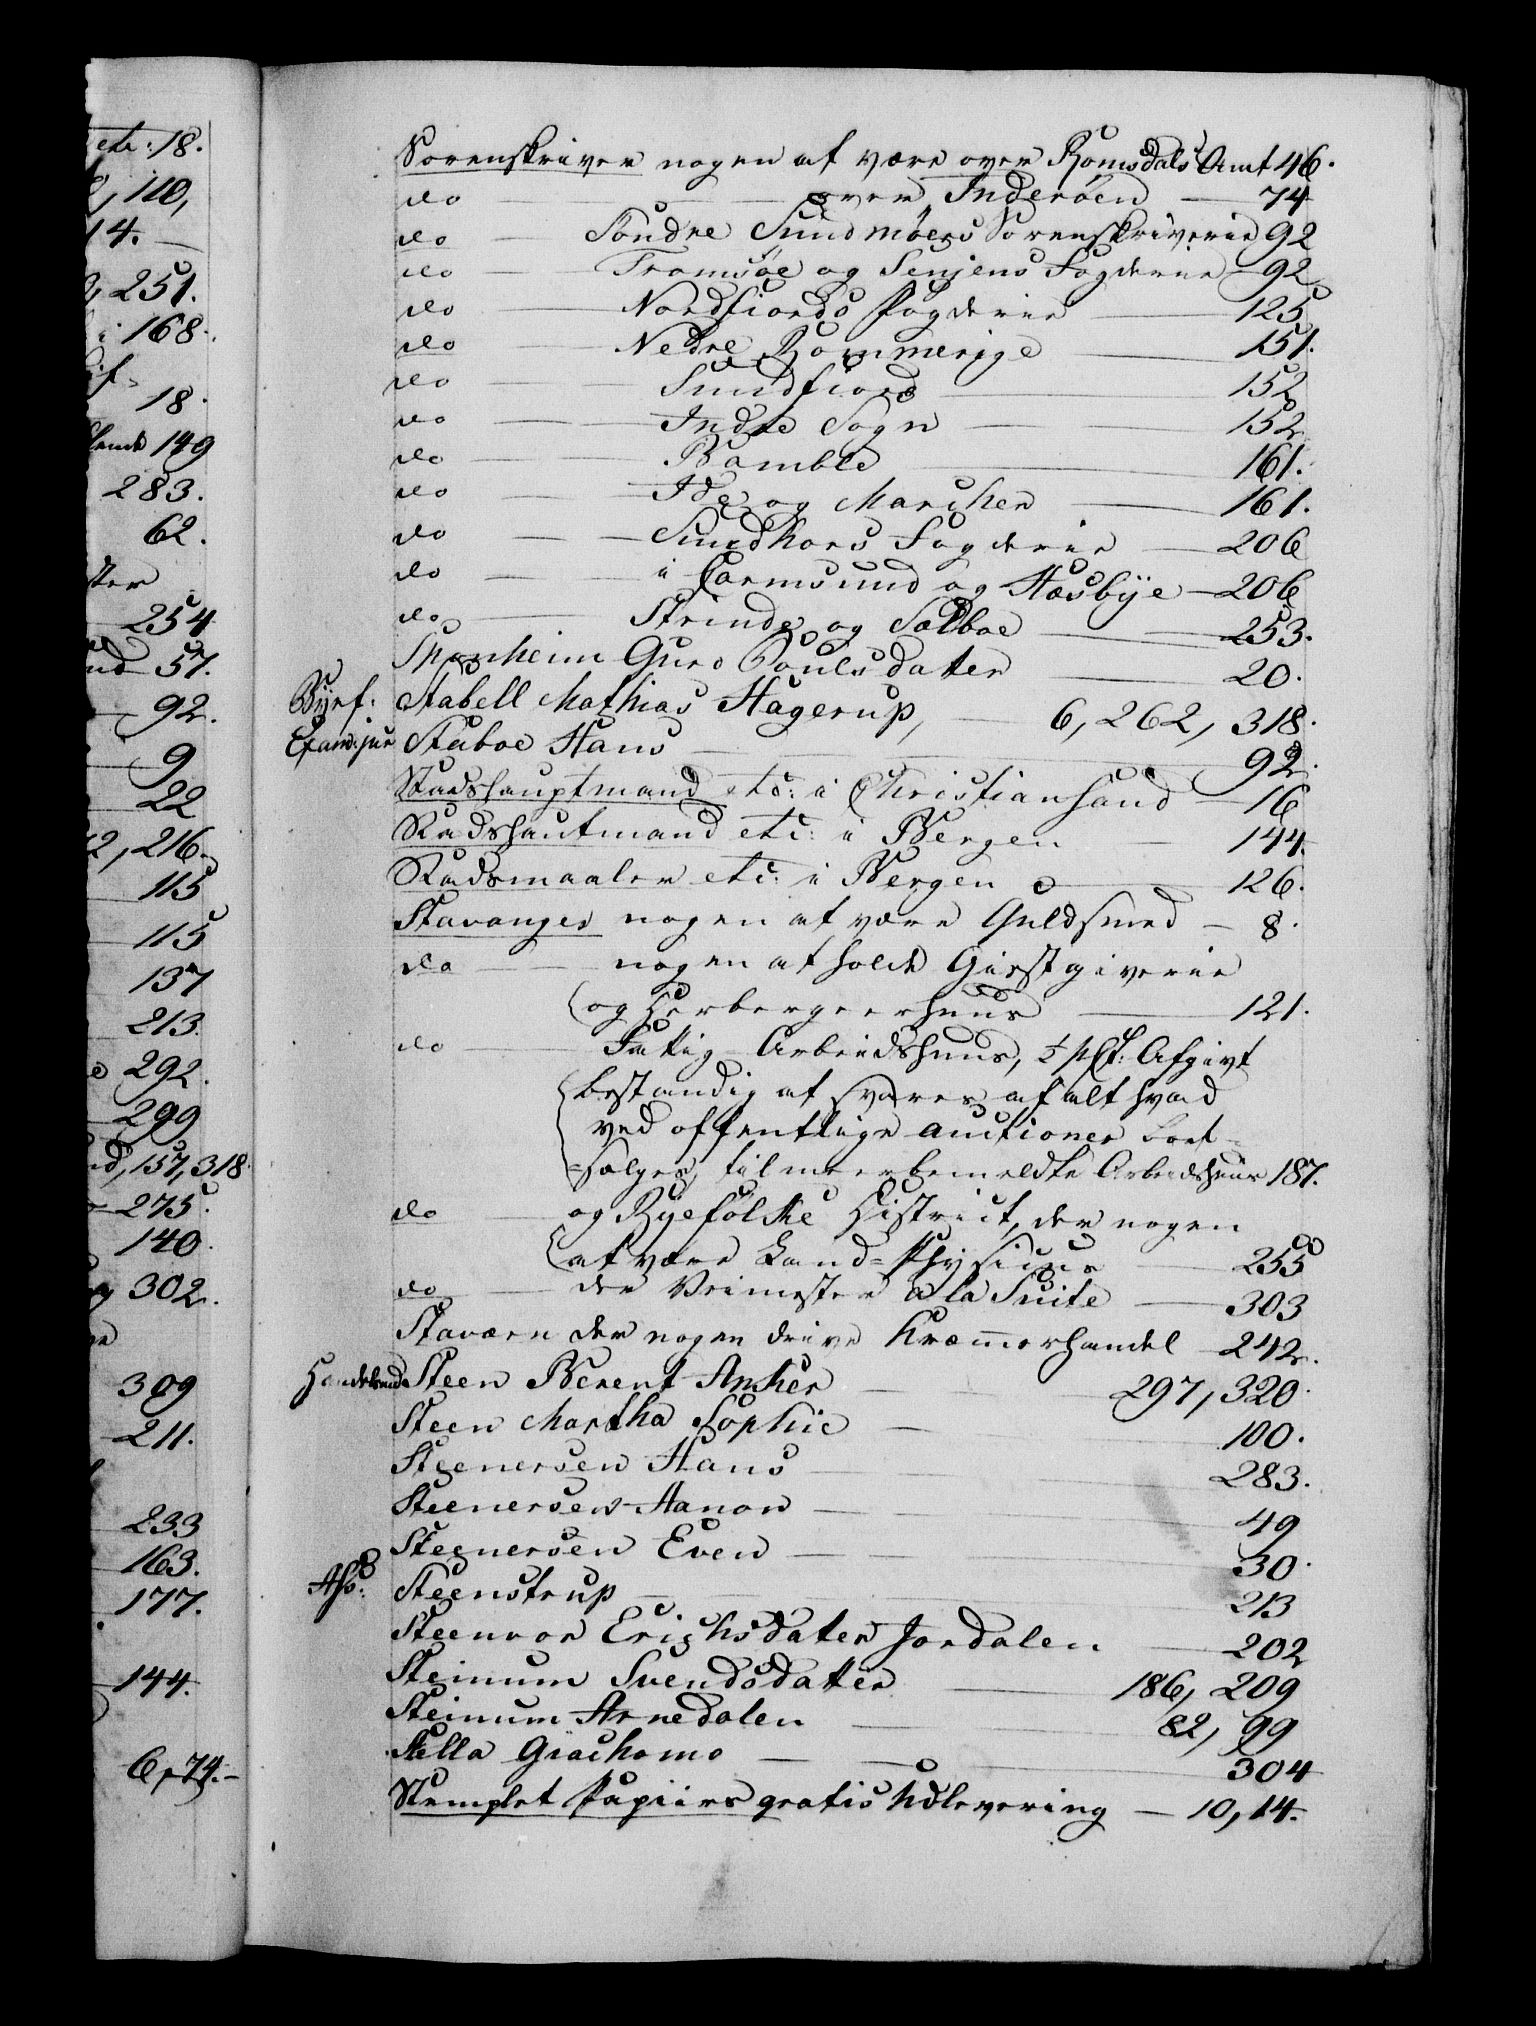 ete: 18.
110,
14.
251.
i 168.
18.
149
283.
62.
254
51.
92.
9
22
216.
115
115
137
213.
292.
299
157, 318.
275.
140.
302.
309
211.
233
163.
177.
144.
6, 74.
Sorenskriver nogen at være over Romsdals Amt 46.
do over Inderöen 74
do Söndre Sundmöers Sorenskriverie 92
do Tromsöe og Senjens Fogderie 92
do Nordfiords Fogderie 125
do Nedre Rommerige 151.
do Sundfiord 152
do Indre Sogn 152
do Bamble 161.
do Ide og Marcher 161.
do Sundhors Fogderie 206
do i Carmsund og Hæsbye 206
do Strinde og Sælboe 253.
Sponheim Guro Poulsdatter 20.
Byef: Stabell Mathias Hagerup, 6, 262, 318.
Exam: jur Staboe Hans 92.
Stadshauptmand etc: i Christiansand 16
Stadshautmand etc: i Bergen 144.
Stadsmaaler etc: i Bergen 126.
Stavanger nogen at være Guldsmed 8.
do nogen at holde Giestgiverie
og Herbergeerhuus 121.
do Fattig Arbeidshuus, ½ pCt: Afgivt
bestandig at svares af alt hvad
ved offentlige auctioner bort=
=sælges, til meerbemeldte Arbeidshuus 187.
do og Ryefölke District, der nogen
at være Land=Physicus 255
do der Veimester a la Suite 303
Staværn der nogen drive Kræmmerhandel 242.
Handelsmd Steen Berent Anker 297, 320.
Steen Martha Sophie 100.
Steenersen Hans 283.
Steenersen Hanor 49
Steenersen Even 30.
Ass: Steenstrup 213
Steenvor Erichsdatter Jordalen 202
Steinum Svendsdatter 186, 209
Steinum Arnedalen 82, 99
Stella Giachomo 304
Stemplet Papiirs gratis Udlevering 10, 14.